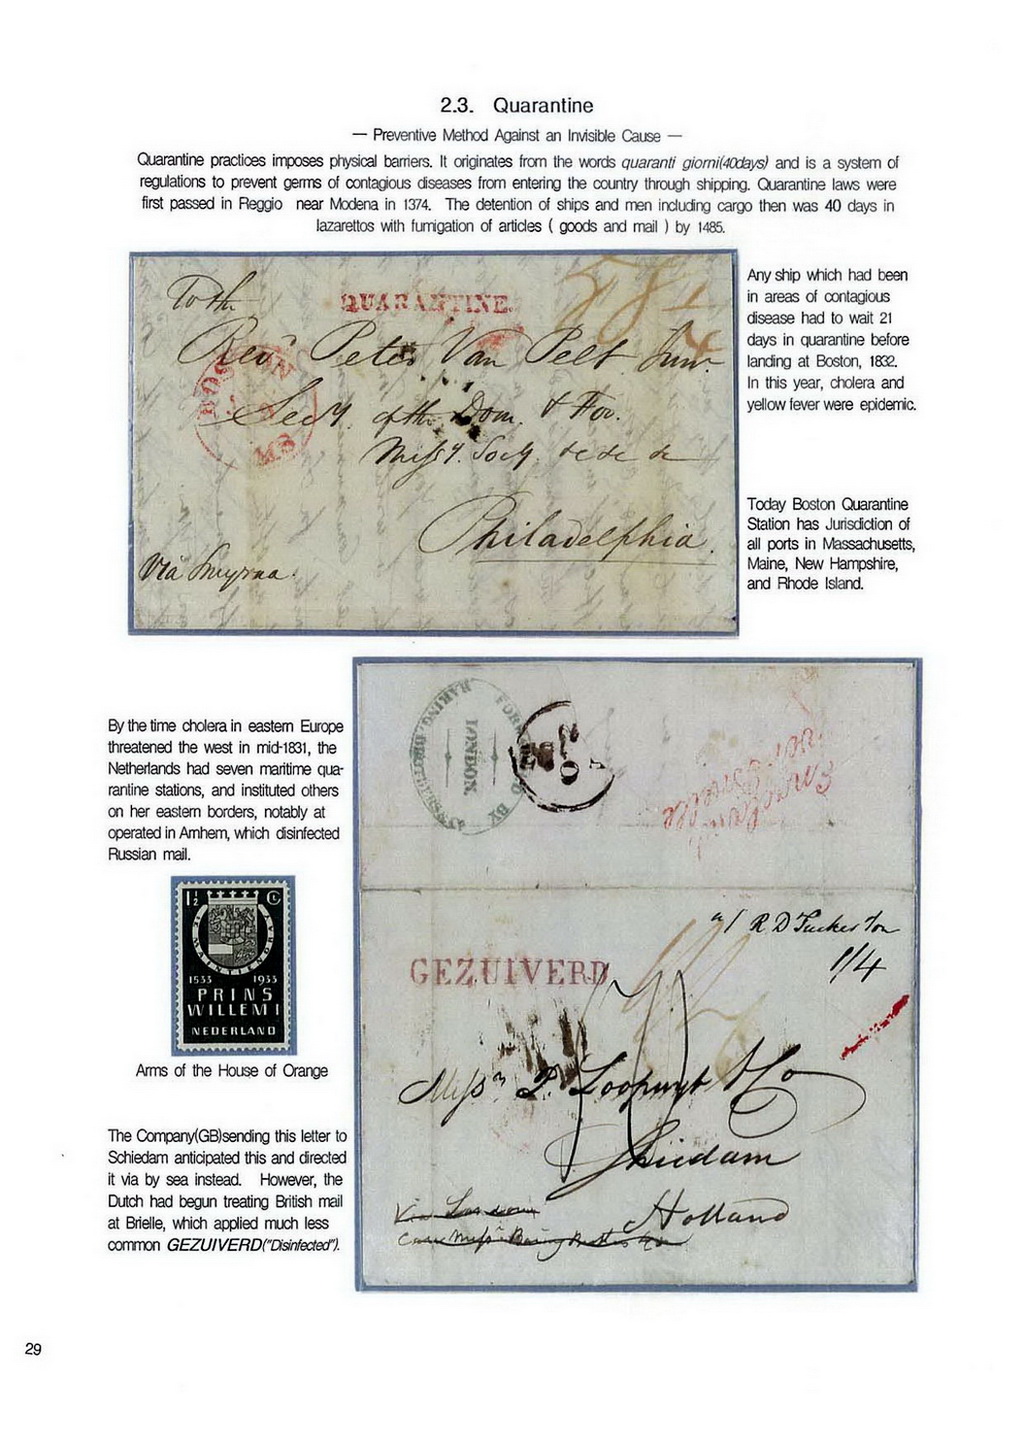 2.3. Quarantine
— Preventive Method Against an Invisible Cause —
Quarantine practices imposes physical barriers. It originates from the words quaranti giorni(40days) and is a system of
regulations to prevent germs of contagious diseases from entering the country through shipping. Quarantine laws were
first passed in Reggio near Modena in 1374. The detention of ships and men including cargo then was 40 days in
lazarettos with fumigation of articles ( goods and mail ) by 1485.
To the
QUARANTINE.
Revd Peter Van Pelt Junr.
BOSTON
MS
Secy. of the Dom. & For.
Missy. Socy. &c &c &c
Philadelphia.
Via Smyrna.
Any ship which had been
in areas of contagious
disease had to wait 21
days in quarantine before
landing at Boston, 1832.
In this year, cholera and
yellow fever were epidemic.
Today Boston Quarantine
Station has Jurisdiction of
all ports in Massachusetts,
Maine, New Hampshire,
and Rhode Island.
By the time cholera in eastern Europe
threatened the west in mid-1831, the
Netherlands had seven maritime qua-
rantine stations, and instituted others
on her eastern borders, notably at
operated in Arnhem, which disinfected
Russian mail.
1½ Ct
JE MAINTIENDRAI
1533 1933
PRINS
WILLEM I
NEDERLAND
Arms of the House of Orange
The Company(GB)sending this letter to
Schiedam anticipated this and directed
it via by sea instead. However, the
Dutch had begun treating British mail
at Brielle, which applied much less
common GEZUIVERD("Disinfected").
FORWARDED BY
BARING BROTHERS
LONDON
R D Tucker
1/4
GEZUIVERD
Messrs P. Loopuyt & Co
Schiedam
Holland
Via London
29